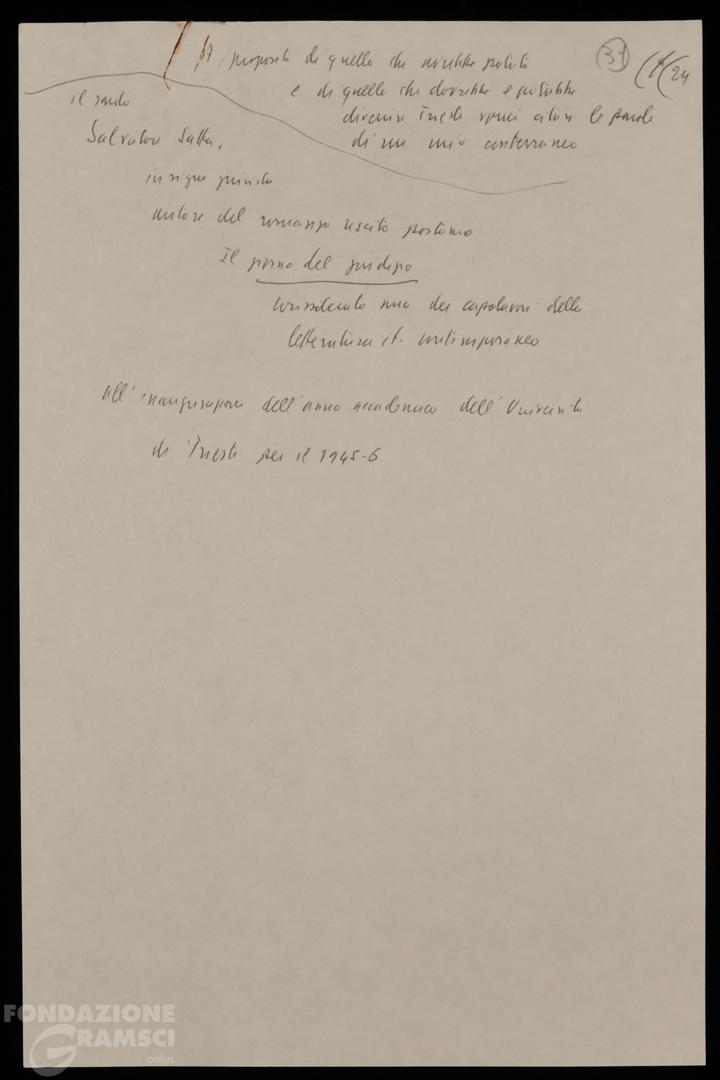 A proposito di quello che avrebbe potuto
31
e di quello che dovrebbe e potrebbe
divenire Trieste vorrei citare le parole
di un mio conterraneo
il sardo
Salvatore Satta,
insigne giurista
autore del romanzo uscito postumo
Il giorno del giudizio
considerato uno dei capolavori della
letteratura it. contemporanea
all'inaugurazione dell'anno accademico dell'Università
di Trieste per il 1945-6
FONDAZIONE
GRAMSCI
onlus